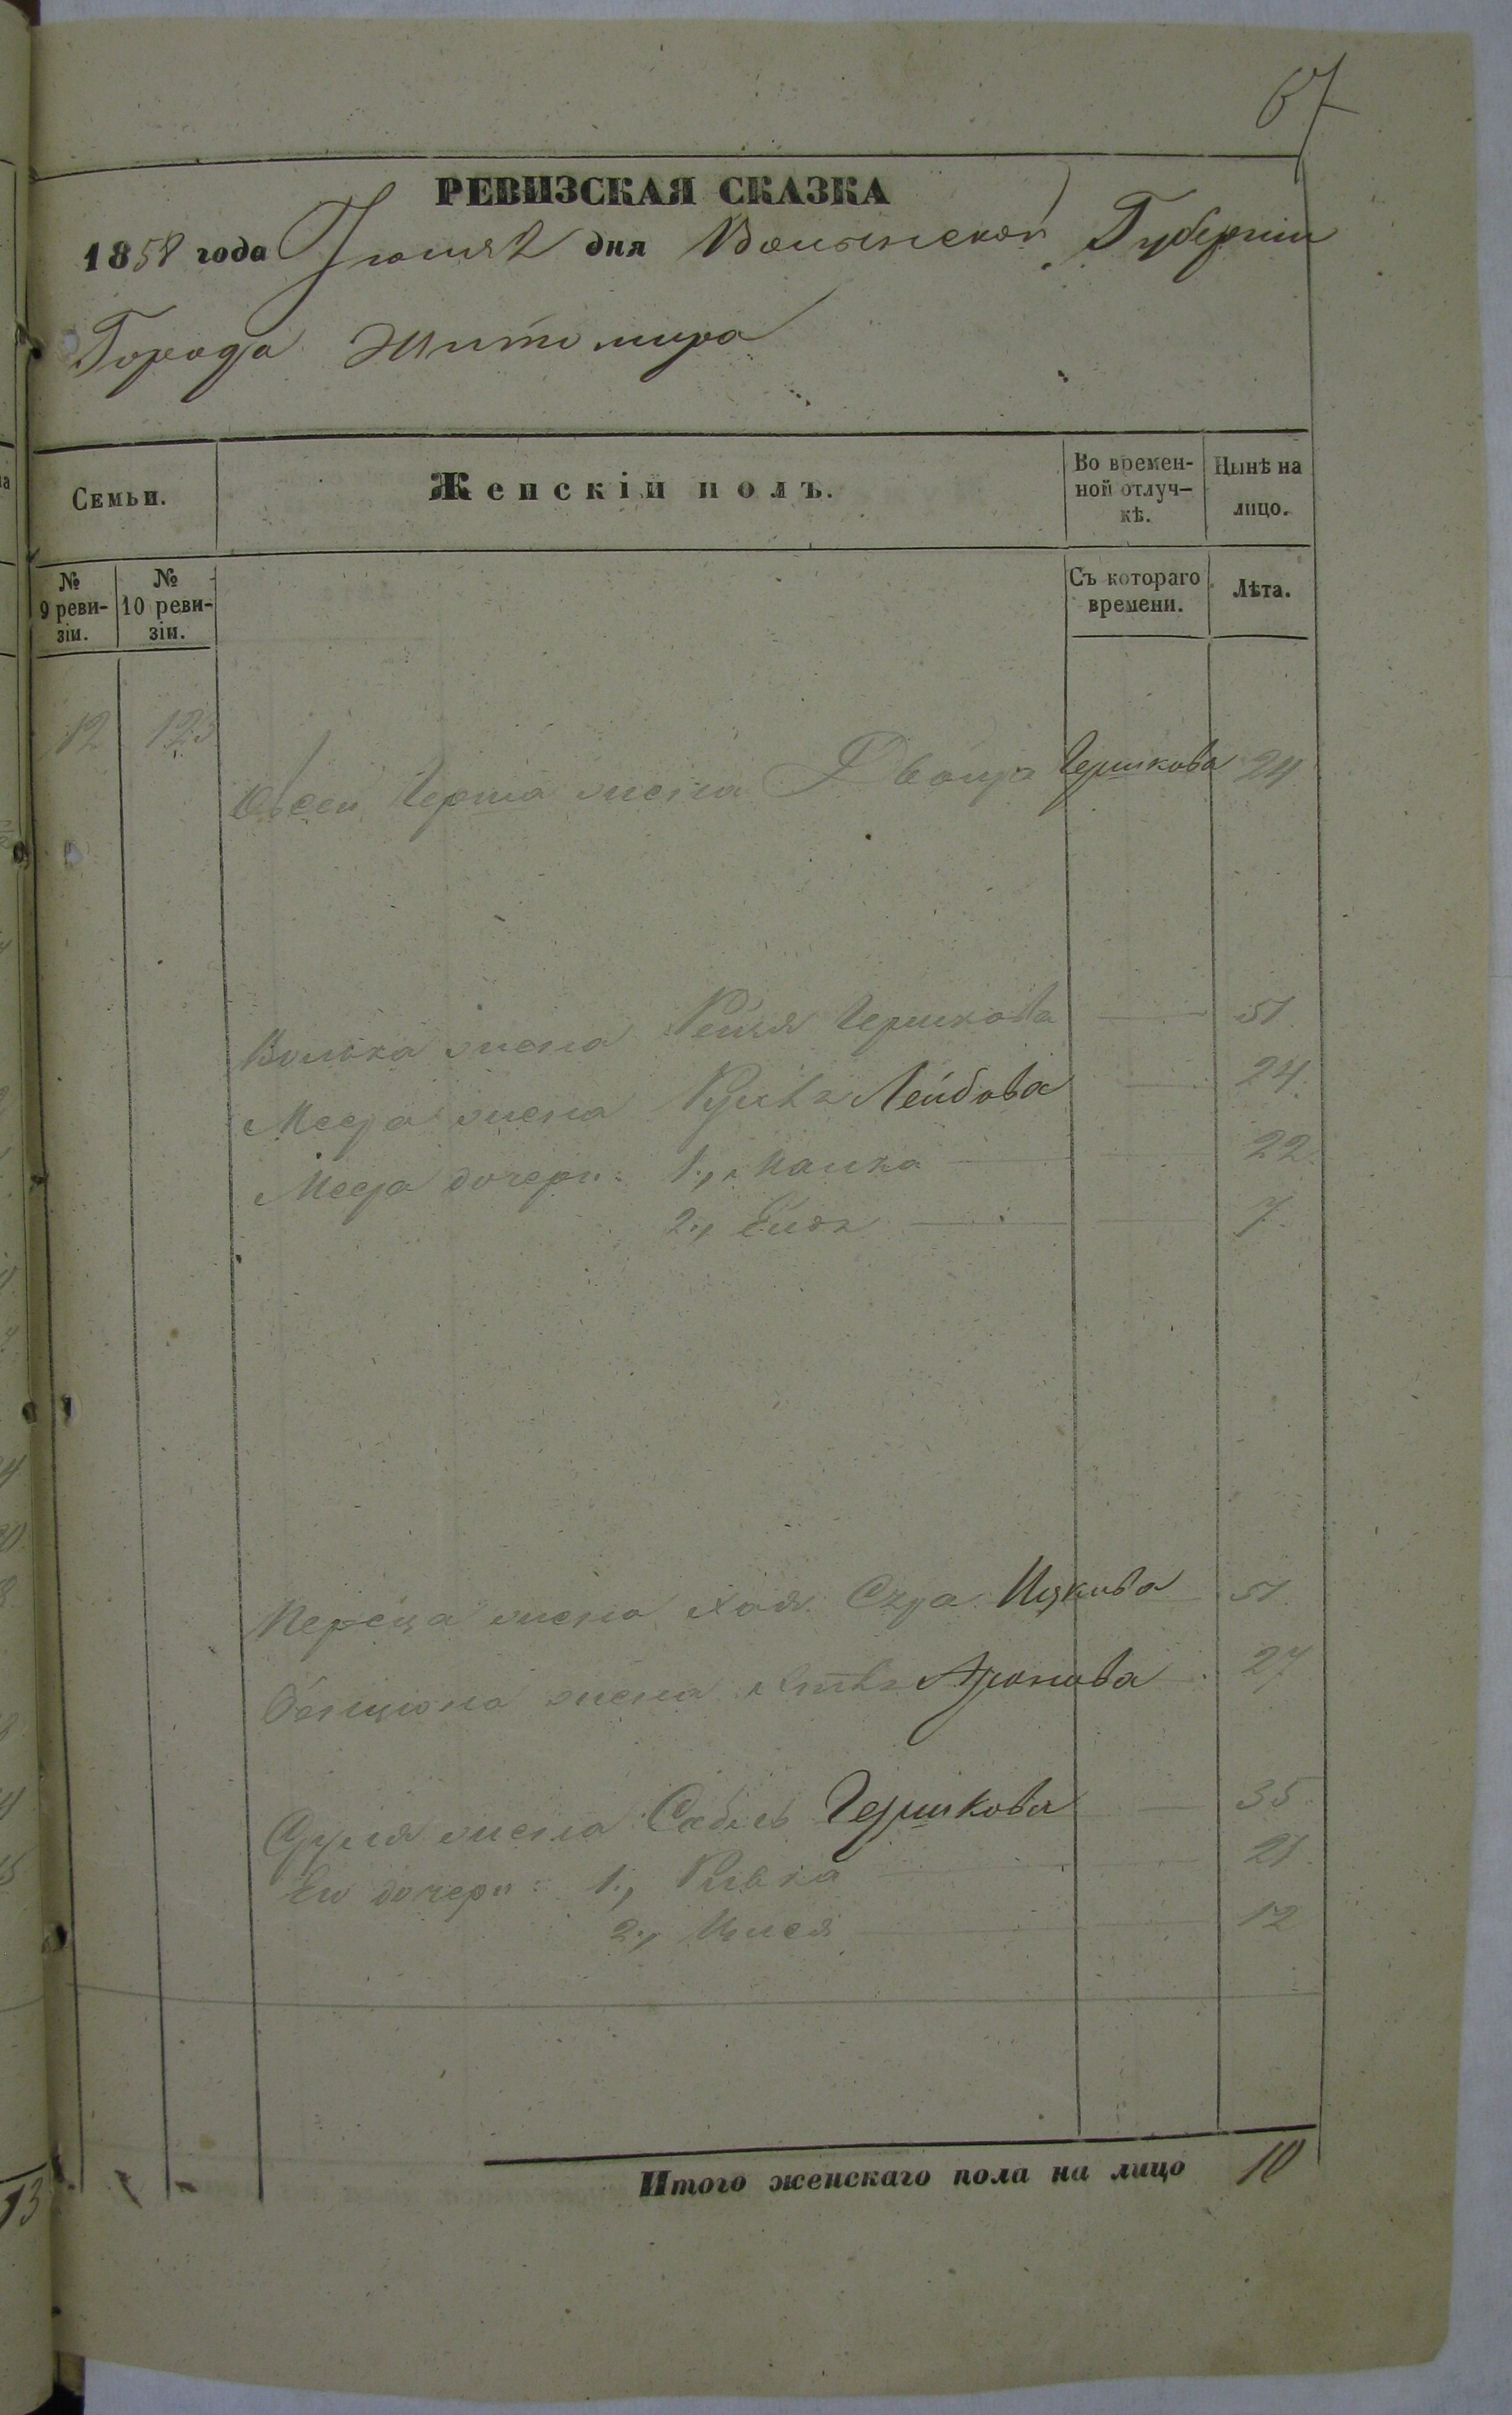 67
РЕВИЗСКАЯ СКАЗКА
1858 года Іюня 2 дня Волынской Губерніи
Города Житомира
Семьи.
Женскій полъ.
Во времен-
ной отлуч-
кѣ.
Нынѣ на
лицо.
№
9 реви-
зіи.
№
10 реви-
зіи.
Съ котораго
времени.
Лѣта.
12 123
Герша жена Двойра Гершкова 24
Волька жена Рейзя Гершкова 51
жена Лейбова 24
дочери: 1., 22
2., 7
Переца жена Хая Сура Ицкова 51
Бенциона жена Аронова 27
Сруля жена Гершкова 35
Его дочери: 1., Ривка 21
2., 12
Итого женскаго пола на лицо 10
13